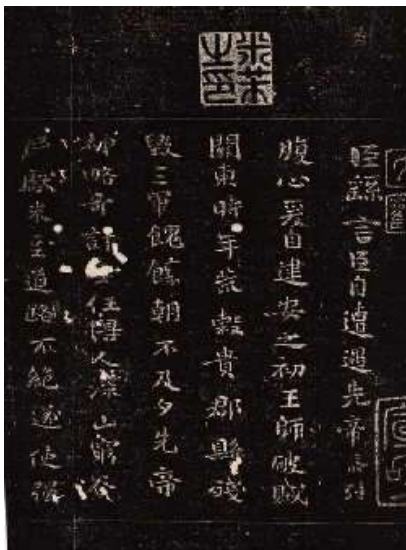 米芾
之印
臣繇言臣自遭遇先帝忝列
腹心爰自建安之初王師破賊
關東時年荒穀貴郡縣殘
毀三軍餽饟朝不及夕先帝
神略奇計委任得人深山窮谷
民獻米豆道路不絕遂使強